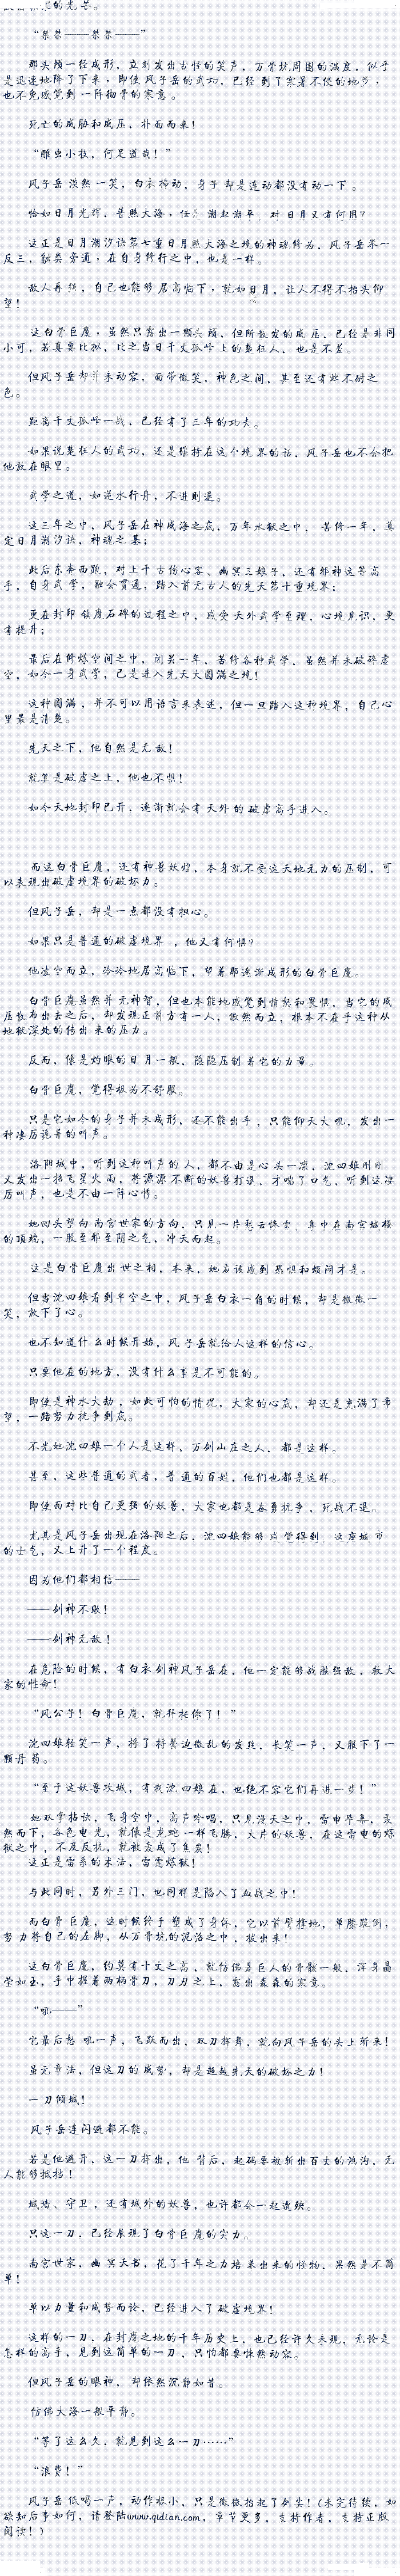 “桀桀——桀桀——”
那头颅一经成形，立刻发出古怪的笑声，万骨坑周围的温度，似乎
是迅速地降了下来，即使风子岳的武功，已经到了寒暑不侵的地步，
也不免感觉到一阵彻骨的寒意。
死亡的威胁和威压，扑面而来！
“雕虫小技，何足道哉！”
风子岳淡然一笑，白衣拂动，身子却是连动都没有动一下。
恰如日月光辉，普照大海，任是潮起潮平，对日月又有何用？
这正是日月潮汐诀第七重日月照大海之境的神魂修为，风子岳举一
反三，触类旁通，在自身修行之中，也是一样。
敌人再强，自己也能够居高临下，就如日月，让人不得不抬头仰
望！
这白骨巨魔，虽然只露出一颗头颅，但所散发的威压，已经是非同
小可，若真要比拟，比之当日千丈孤峰上的楚狂人，也是不差。
但风子岳却并未动容，面带微笑，神色之间，甚至还有些不耐之
色。
距离千丈孤峰一战，已经有了三年的功夫。
如果说楚狂人的武功，还是维持在这个境界的话，风子岳也不会把
他放在眼里。
武学之道，如逆水行舟，不进则退。
这三年之中，风子岳在神威海之底，万年水狱之中，苦修一年，奠
定日月潮汐诀，神魂之基；
此后东奔西跑，对上千古伤心客、幽冥三娘子，还有邪神这等高
手，自身武学，融会贯通，踏入前无古人的先天第十重境界；
更在封印镇魔石碑的过程之中，感受天外武学至理，心境见识，更
有提升；
最后在修炼空间之中，闭关一年，苦修各种武学，虽然并未破碎虚
空，如今一身武学，已是进入先天大圆满之境！
这种圆满，并不可以用语言来表述，但一旦踏入这种境界，自己心
里最是清楚。
先天之下，他自然是无敌！
就算是破虚之上，他也不惧！
如今天地封印已开，逐渐就会有天外的破虚高手进入。
而这白骨巨魔，还有神兽妖狩，本身就不受这天地元力的压制，可
以表现出破虚境界的破坏力。
但风子岳，却是一点都没有担心。
如果只是普通的破虚境界，他又有何惧？
他凌空而立，冷冷地居高临下，望着那逐渐成形的白骨巨魔。
白骨巨魔虽然并无神智，但也本能地感觉到愤怒和畏惧，当它的威
压散布出去之后，却发现正前方有一人，傲然而立，根本不在乎这种从
地狱深处的传出来的压力。
反而，像是灼眼的日月一般，隐隐压制着它的力量。
白骨巨魔，觉得极为不舒服。
只是它如今的身子并未成形，还不能出手，只能仰天大吼，发出一
种凄厉诡异的叫声。
洛阳城中，听到这种叫声的人，都不由是心头一凛，沈四娘刚刚
又发出一招飞星火雨，将源源不断的妖兽打退，才喘了口气，听到这凄
厉叫声，也是不由一阵心悸。
她回头望向南宫世家的方向，只见一片愁云惨雾，集中在南宫城楼
的顶端，一股至邪至阴之气，冲天而起。
这是白骨巨魔出世之相，本来，她应该感到恐惧和烦闷才是。
但当沈四娘看到半空之中，风子岳白衣一角的时候，却是微微一
笑，放下了心。
也不知道什么时候开始，风子岳就给人这样的信心。
只要他在的地方，没有什么事是不可能的。
即使是神水大劫，如此可怕的情况，大家的心底，却还是充满了希
望，一路努力抗争到底。
不光她沈四娘一个人是这样，万剑山庄之人，都是这样。
甚至，这些普通的武者，普通的百姓，他们也都是这样。
即使面对比自己更强的妖兽，大家也都是奋勇抗争，死战不退。
尤其是风子岳出现在洛阳之后，沈四娘能够感觉得到，这座城市
的士气，又上升了一个程度。
因为他们都相信——
——剑神不败！
——剑神无敌！
在危险的时候，有白衣剑神风子岳在，他一定能够战胜强敌，救大
家的性命！
“风公子！白骨巨魔，就拜托你了！”
沈四娘轻笑一声，捋了捋鬓边微乱的发丝，长笑一声，又服下了一
颗丹药。
“至于这妖兽攻城，有我沈四娘在，也绝不容它们再进一步！”
她双掌掐诀，飞身空中，高声吟唱，只见漫天之中，雷电毕集，轰
然而下，各色电光，就像是龙蛇一样飞腾，大片的妖兽，在这雷电的炼
狱之中，不及反抗，就被轰成了焦炭！
这正是雷系的术法，雷霆炼狱！
与此同时，另外三门，也同样是陷入了血战之中！
而白骨巨魔，这时候终于塑成了身体，它以前臂撑地，单膝跪倒，
努力将自己的左脚，从万骨坑的泥沼之中，拔出来！
这白骨巨魔，约莫有十丈之高，就仿佛是巨人的骨骸一般，浑身晶
莹如玉，手中握着两柄骨刀，刀刃之上，露出森森的寒意。
“吼——”
它最后怒吼一声，飞跃而出，双刀挥舞，就向风子岳的头上斩来！
虽无章法，但这刀的威势，却是超越先天的破坏之力！
一刀倾城！
风子岳连闪避都不能。
若是他避开，这一刀挥出，他背后，起码要被斩出百丈的鸿沟，无
人能够抵挡！
城墙、守卫，还有城外的妖兽，也许都会一起遭殃。
只这一刀，已经展现了白骨巨魔的实力。
南宫世家，幽冥天书，花了千年之力培养出来的怪物，果然是不简
单！
单以力量和威势而论，已经进入了破虚境界！
这样的一刀，在封魔之地的千年历史上，也已经许久未现，无论是
怎样的高手，见到这简单的一刀，只怕都要悚然动容。
但风子岳的眼神，却依然沉静如昔。
仿佛大海一般平静。
“等了这么久，就见到这么一刀……”
“浪费！”
风子岳低吗一声，动作极小，只是微微抬起了剑尖！（未完待续，如
欲知后事如何，请登陆www.qidian.com，章节更多，支持作者，支持正版
阅读！）